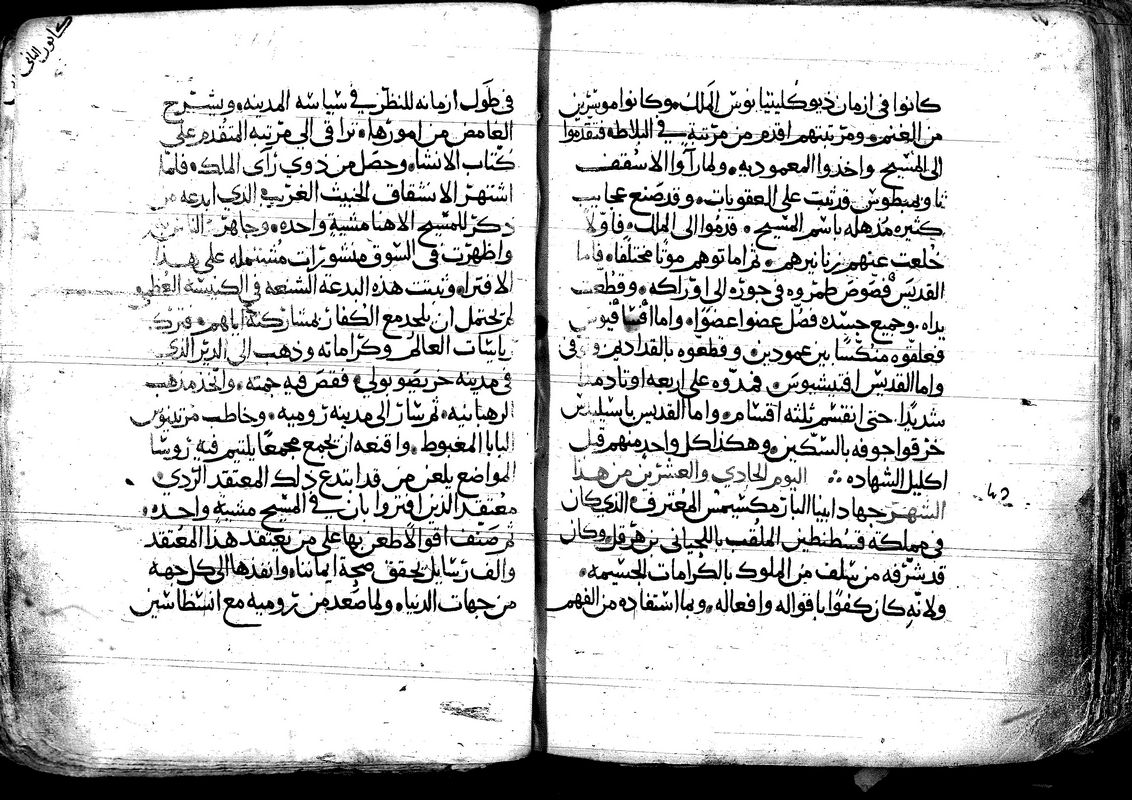 كانوا فى ازمان ذيوكليتيانوس الملك وكانوا موسرين
من الغنم ومرتبتهم اقدم من مرتبة في البلاطه فتقدموا
الى المسيح واخذوا المعموديه ولما راوا الاسقف
ثاوبمبطوس قد ثبت على العقوبات وقد صنع عجايب
كثيره مذهله باسم المسيح قدموا الى الملك فاولا
خلعت عنهم زنانيرهم ثم اماتوهم موتا مختلفا فاما
القديس فصوص طمروه في جوره الى اوراكه وقطعت
يداه وجميع جسده فصل عضوا عضوا واما
فعلقوه منكسا بين عمودين وقطعوه بالقدادين
واما القديس افتيشيوس فمدوه على اربعه اوتاد مدا
شديدا حتى انقسم ثلثه اقسام واما القديس باسيليدس
خرقوا جوفه بالسكين وهكذا كل واحد منهم قبل
اكليل الشهاده اليوم الحادي والعشرين من هذا
الشهر جهاد ابينا البار مكسيمس المعترف الذي كان
في مملكة قسطنطين الملقب باللحياني بن هرقل وكان
قد شرفه من سلف من الملوك بالكرامات الجسيمه
ولانه كان كفوا باقواله وافعاله وبما استفاده من الفهم
42
كانون الثاني
في طول ازمانه للنظر في سياسه المدينه ويشرح
الغامض من امورها ترافى الى مرتبه المتقدم على
كتاب الانشاء وحصل من ذوي راى الملك فلما
اشتهر الانشقاق الخبيث الغريب الذي ابدعه من
ذكر للمسيح الاهنا مشية واحده وجاهر
واظهرت في السوق منشورات مشتمله على هذا
الافترا وثبت هذه البدعه الشنعه في الكنيسه العظمى
لم يحتمل ان يلحد مع الكفار بمشاركته اياهم فترك
رياسات العالم وكراماته وذهب الى الدير الذي
في مدينه خريصوبولي فقص فيه جمته واتخذ مذهب
الرهبانيه ثم سار الى مدينه روميه وخاطب مرتينوس
البابا المغبوط واقنعه ان يجمع مجمعا يلتيم فيه روسا
المواضع يلعن من قد ابتدع ذلك المعتقد الردي
معتقد الذين افتروا بان في المسيح مشية واحده
ثم صنف اقوالا طعن بها على من يعتقد هذا المعتقد
والف رسايل تحقق صحة ايماننا وانفذها الى كل جهه
من جهات الدنيا ولما صعد من روميه مع انسطاسيس